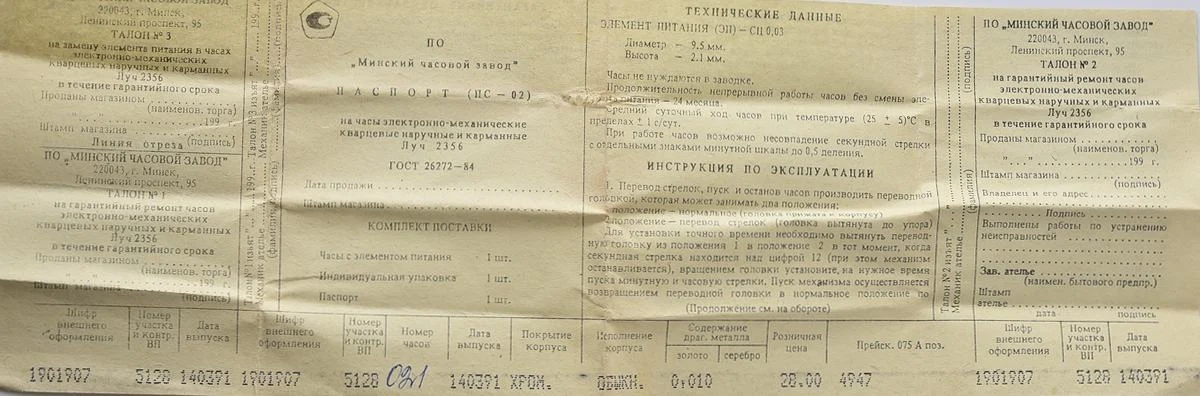 ПО „МИНСКИЙ ЧАСОВОЙ ЗАВОД"
220043, г. Минск,
Ленинский проспект, 95
ТАЛОН № 3
на замену элемента питания в часах
электронно-механических
кварцевых наручных и карманных
Луч 2356
в течение гарантийного срока
Проданы магазином
(наименов. торга)
„ " 199 г.
Штамп магазина
(подпись)
Линия отреза
ПО „МИНСКИЙ ЧАСОВОЙ ЗАВОД"
220043, г. Минск,
Ленинский проспект, 95
ТАЛОН № 1
на гарантийный ремонт часов
электронно-механических
кварцевых наручных и карманных
Луч 2356
в течение гарантийного срока
Проданы магазином
(наименов. торга)
„ " 199 г.
Штамп магазина
(подпись)
Талон №3 изъят „ " 199 г.
Механик ателье
(фамилия) (подпись)
Талон №1 изъят „ " 199 г.
Механик ателье
(фамилия) (подпись)
ПО
„Минский часовой завод"
ПАСПОРТ (ПС-02)
на часы электронно-механические
кварцевые наручные и карманные
Луч 2356
ГОСТ 26272-84
Дата продажи
Штамп магазина
КОМПЛЕКТ ПОСТАВКИ
Часы с элементом питания 1 шт.
Индивидуальная упаковка 1 шт.
Паспорт 1 шт.
ТЕХНИЧЕСКИЕ ДАННЫЕ
ЭЛЕМЕНТ ПИТАНИЯ (ЭП) – СЦ 0,03
Диаметр – 9.5 мм.
Высота – 2.1 мм.
Часы не нуждаются в заводке.
Продолжительность непрерывной работы часов без смены эле-
питания – 24 месяца.
Средний суточный ход часов при температуре (25 ± 5)°С в
пределах ± 1 с/сут.
При работе часов возможно несовпадение секундной стрелки
с отдельными знаками минутной шкалы до 0,5 деления.
ИНСТРУКЦИЯ ПО ЭКСПЛУАТАЦИИ
1. Перевод стрелок, пуск и останов часов производить переводной
головкой, которая может занимать два положения:
положение – нормальное (головка прижата к корпусу)
2 положение – перевод стрелок (головка вытянута до упора)
Для установки точного времени необходимо вытянуть перевод-
ную головку из положения 1 в положение 2 в тот момент, когда
секундная стрелка находится над цифрой 12 (при этом механизм
останавливается), вращением головки установите, на нужное время
пуска минутную и часовую стрелки. Пуск механизма осуществляется
возвращением переводной головки в нормальное положение по
(Продолжение см. на обороте)
Талон №2 изъят „ " 199 г.
Механик ателье
(фамилия) (подпись)
ПО „МИНСКИЙ ЧАСОВОЙ ЗАВОД"
220043, г. Минск,
Ленинский проспект, 95
ТАЛОН № 2
на гарантийный ремонт часов
электронно-механических
кварцевых наручных и карманных
Луч 2356
в течение гарантийного срока
Проданы магазином
(наименов. торга)
„ " 199 г.
Штамп магазина
(подпись)
Владелец и его адрес
Подпись
Выполнены работы по устранению
неисправностей
Зав. ателье
(наимен. бытового предпр.)
Штамп
ателье
дата подпись
Шифр внешнего оформления Номер участка и контр. ВП Дата выпуска
1901907 5128 140391
Шифр внешнего оформления Номер участка и контр. ВП Номер часов Дата выпуска Покрытие корпуса Исполнение корпуса Содержание драг. металла золото серебро Розничная цена Прейск. 075 А поз.
1901907 5128 021 140391 ХРОМ. ОБЫКН. 0.010 28.00 4947
Шифр внешнего оформления Номер участка и контр. ВП Дата выпуска
1901907 5128 140391